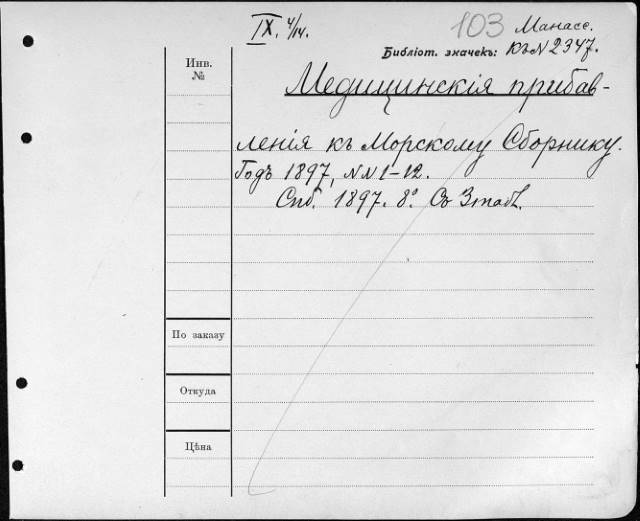 IX. 4/14.
103 Манассе.
Библіот. значекъ: КъN2347.
Инв.
№
Медицинскія прибав-
ленія къ Морскому Сборнику.
Годъ 1897, NN1-12.
Спб. 1897. 8º. Съ 3табл.
По заказу
Откуда
Цѣна